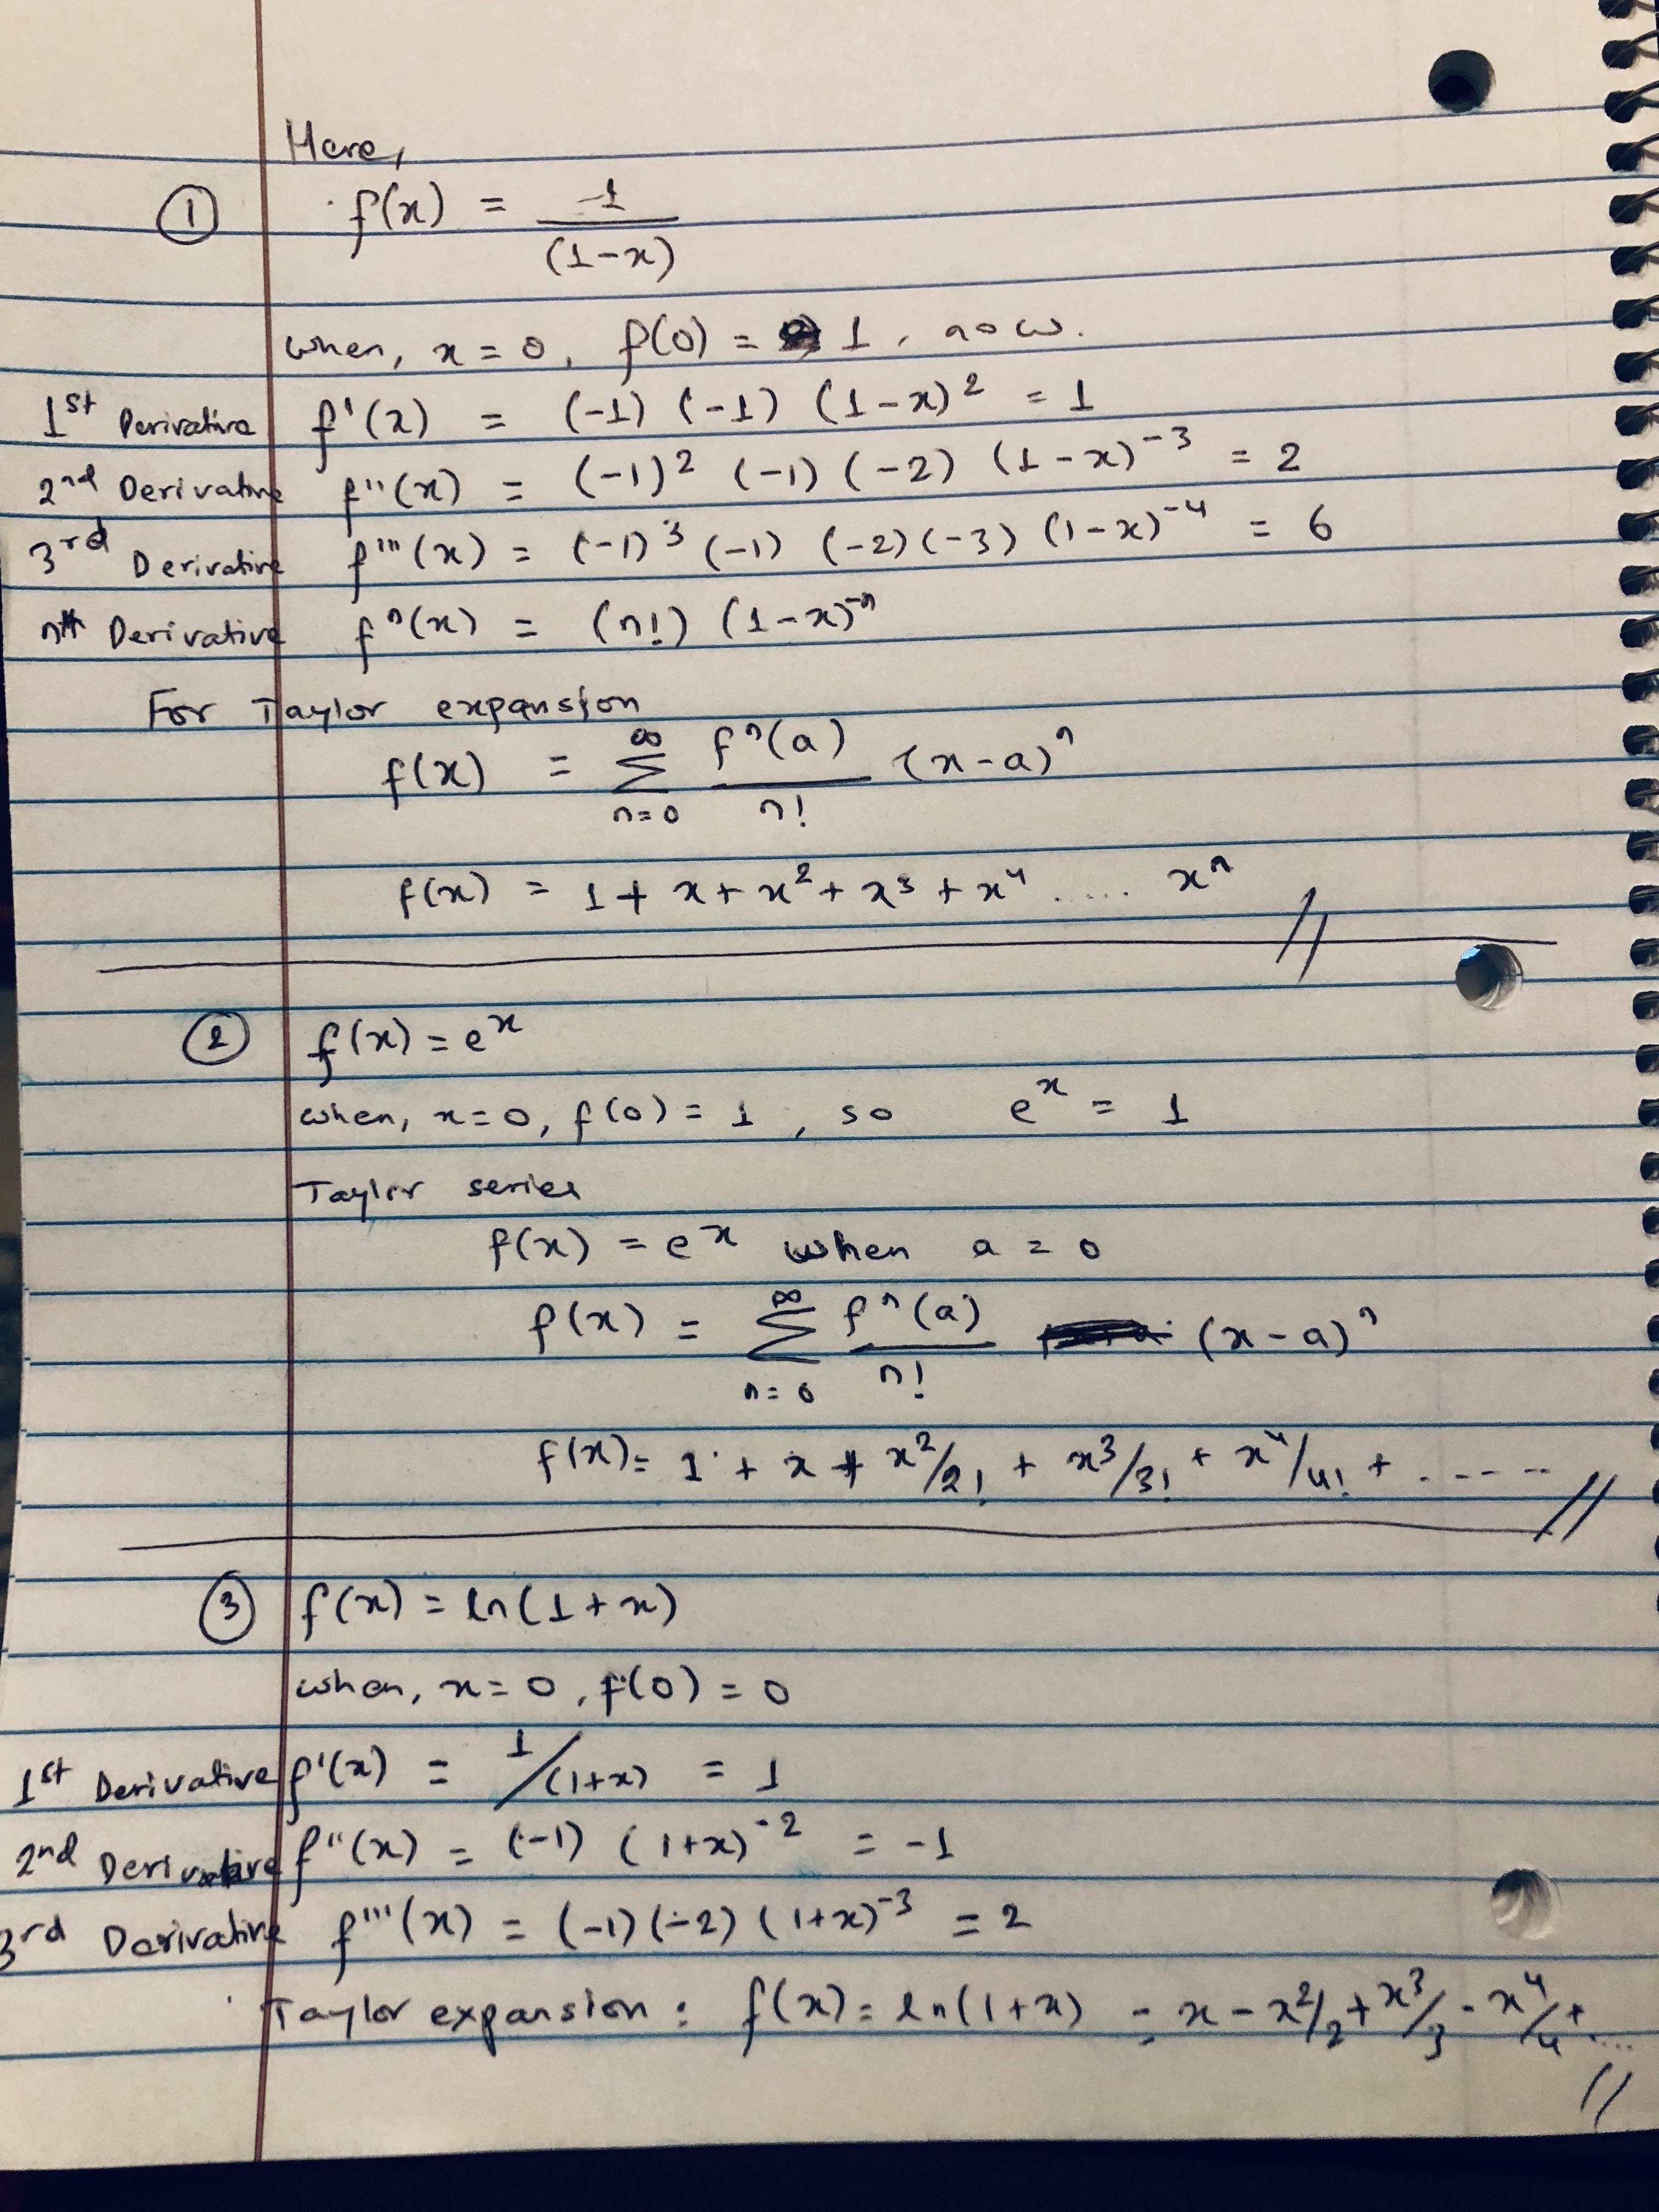 Here,
① f(x) = 1/(1-x)
when, x = 0, f(0) = 1, now.
1st Derivative f'(x) = (-1) (-1) (1-x)² = 1
2nd Derivative f''(x) = (-1)² (-1) (-2) (1-x)⁻³ = 2
3rd Derivative f'''(x) = (-1)³ (-1) (-2) (-3) (1-x)⁻⁴ = 6
nth Derivative fⁿ(x) = (n!) (1-x)⁻ⁿ
For Taylor expansion
f(x) = ∞ Σ n=0 fⁿ(a)/n! (x-a)ⁿ
f(x) = 1 + x + x² + x³ + x⁴ ..... xⁿ //
② f(x) = eˣ
when, x = 0, f(0) = 1, so eˣ = 1
Taylor series
f(x) = eˣ when a = 0
f(x) = ∞ Σ n=0 fⁿ(a)/n! (x-a)ⁿ
f(x) = 1 + x + x²/2! + x³/3! + x⁴/4! + ..... //
③ f(x) = ln(1+x)
when, x = 0, f(0) = 0
1st Derivative f'(x) = 1/(1+x) = 1
2nd Derivative f''(x) = (-1) (1+x)⁻² = -1
3rd Derivative f'''(x) = (-1) (-2) (1+x)⁻³ = 2
Taylor expansion: f(x) = ln(1+x) = x - x²/2 + x³/3 - x⁴/4 + .... //